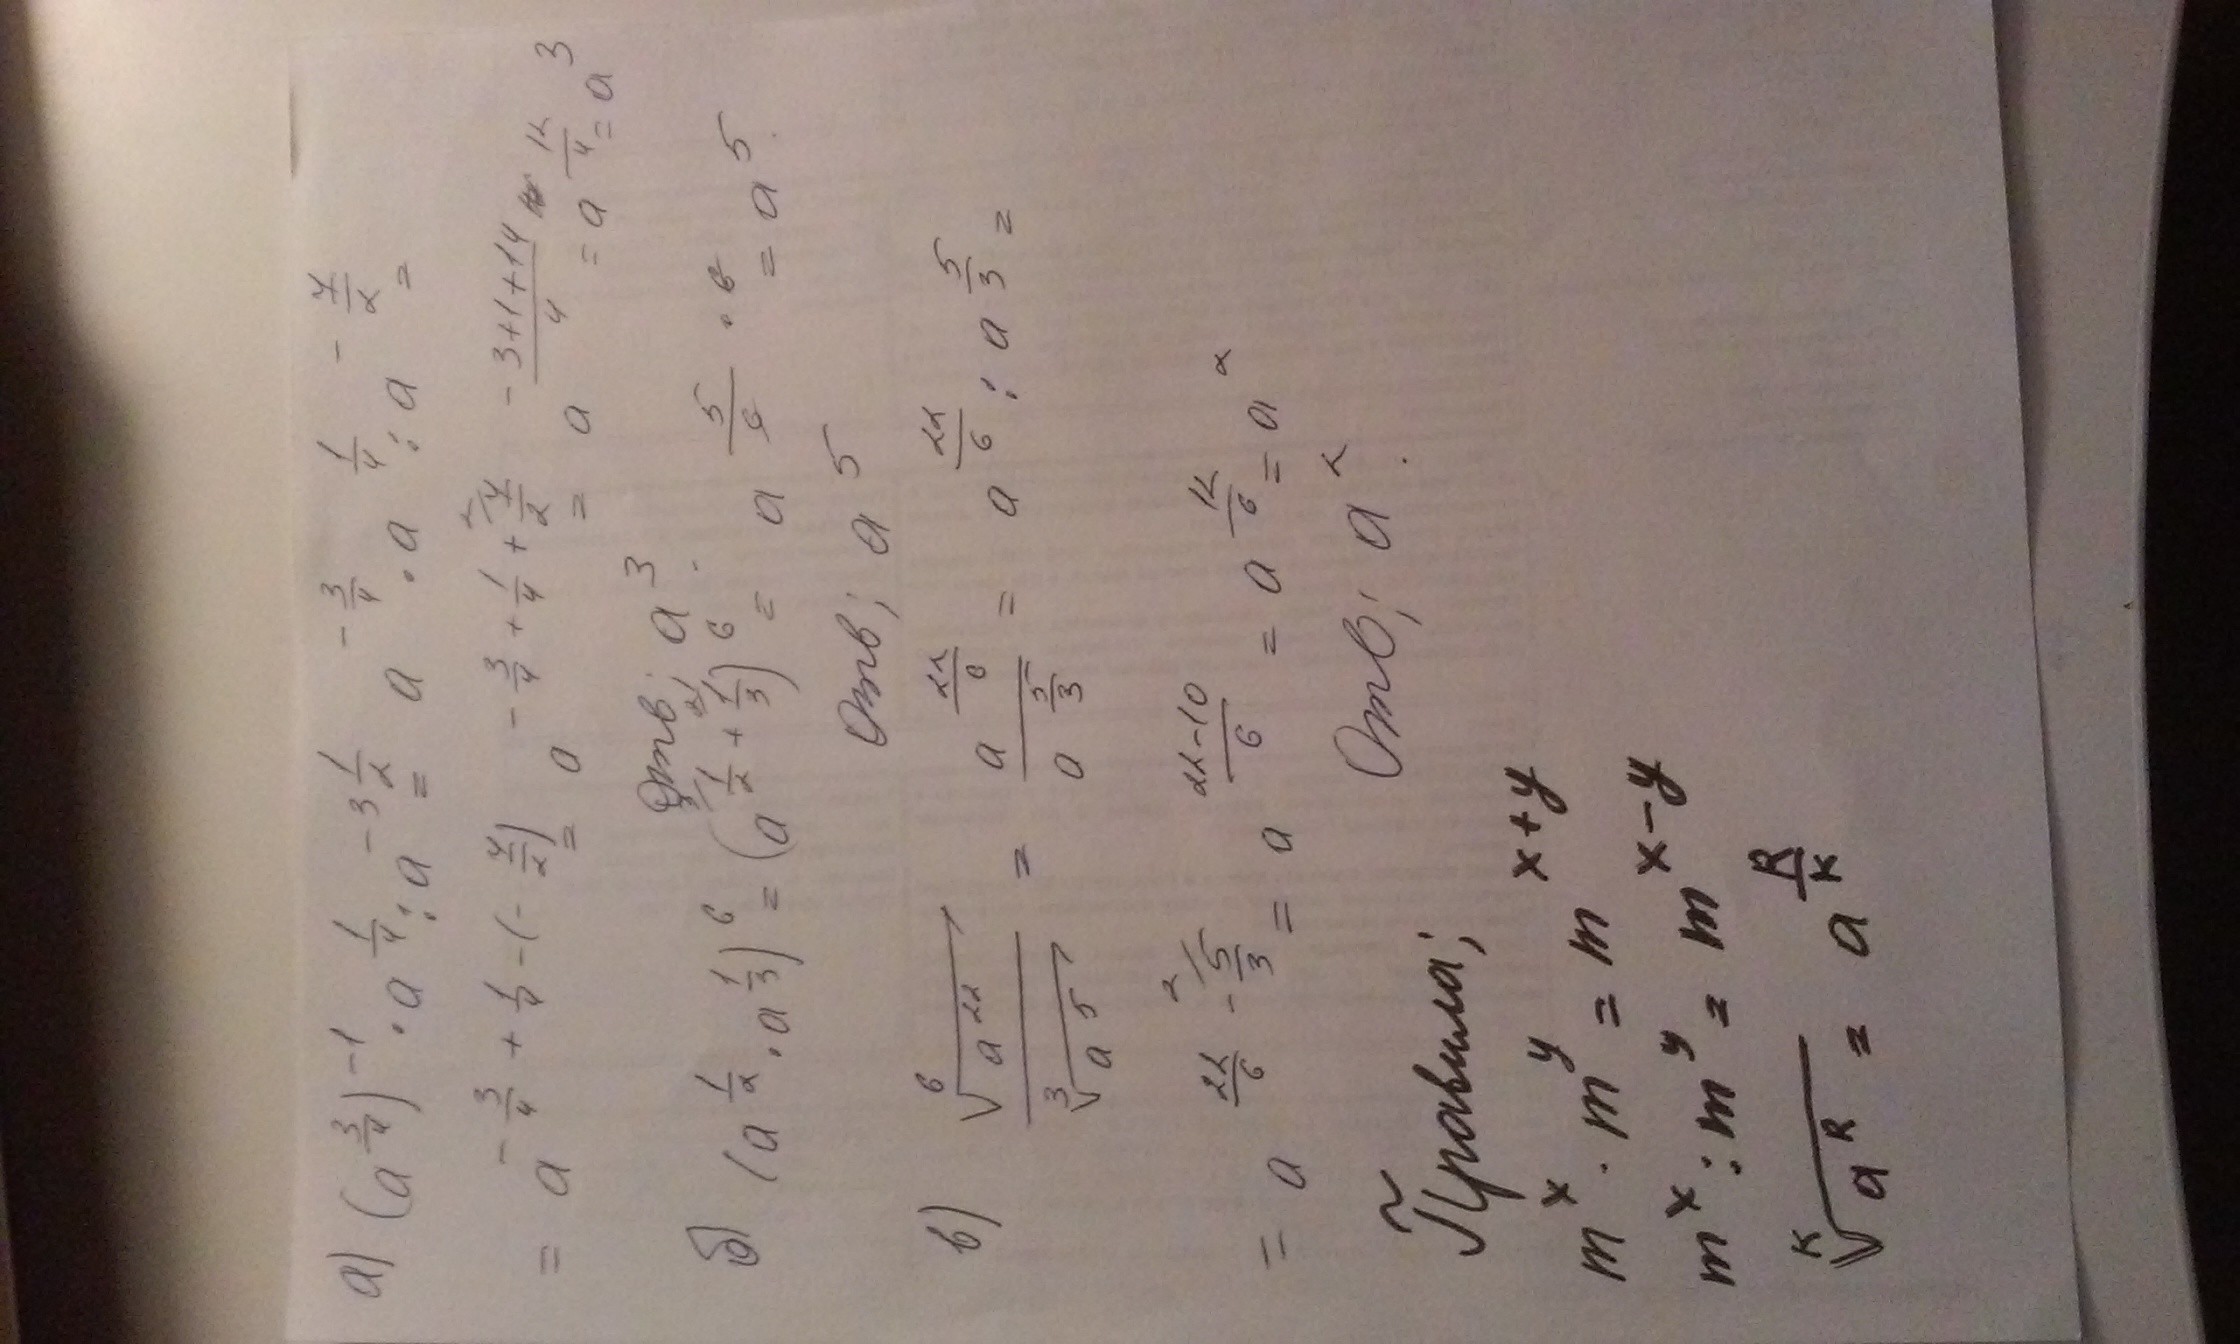 а) (a^{3/4})^{-1} · a^{1/4} : a^{-3 1/2} = a^{-3/4} · a^{1/4} : a^{-7/2} =
= a^{-3/4 + 1/4 - (-7/2)} = a^{-3/4 + 1/4 + 7/2} = a^{-3+1+14/4} = a^{12/4} = a^3
Отв; a^3.
б) (a^{1/2} · a^{1/3})^6 = (a^{1/2 + 1/3})^6 = a^{5/6 · 6} = a^5.
Отв; a^5
в) \sqrt[6]{a^{22}} / \sqrt[3]{a^5} = a^{22/6} / a^{5/3} = a^{22/6} : a^{5/3} =
= a^{22/6 - 5/3} = a^{22-10/6} = a^{12/6} = a^2
Отв; a^2.
Правила;
m^x · m^y = m^{x+y}
m^x : m^y = m^{x-y}
\sqrt[к]{a^R} = a^{R/к}